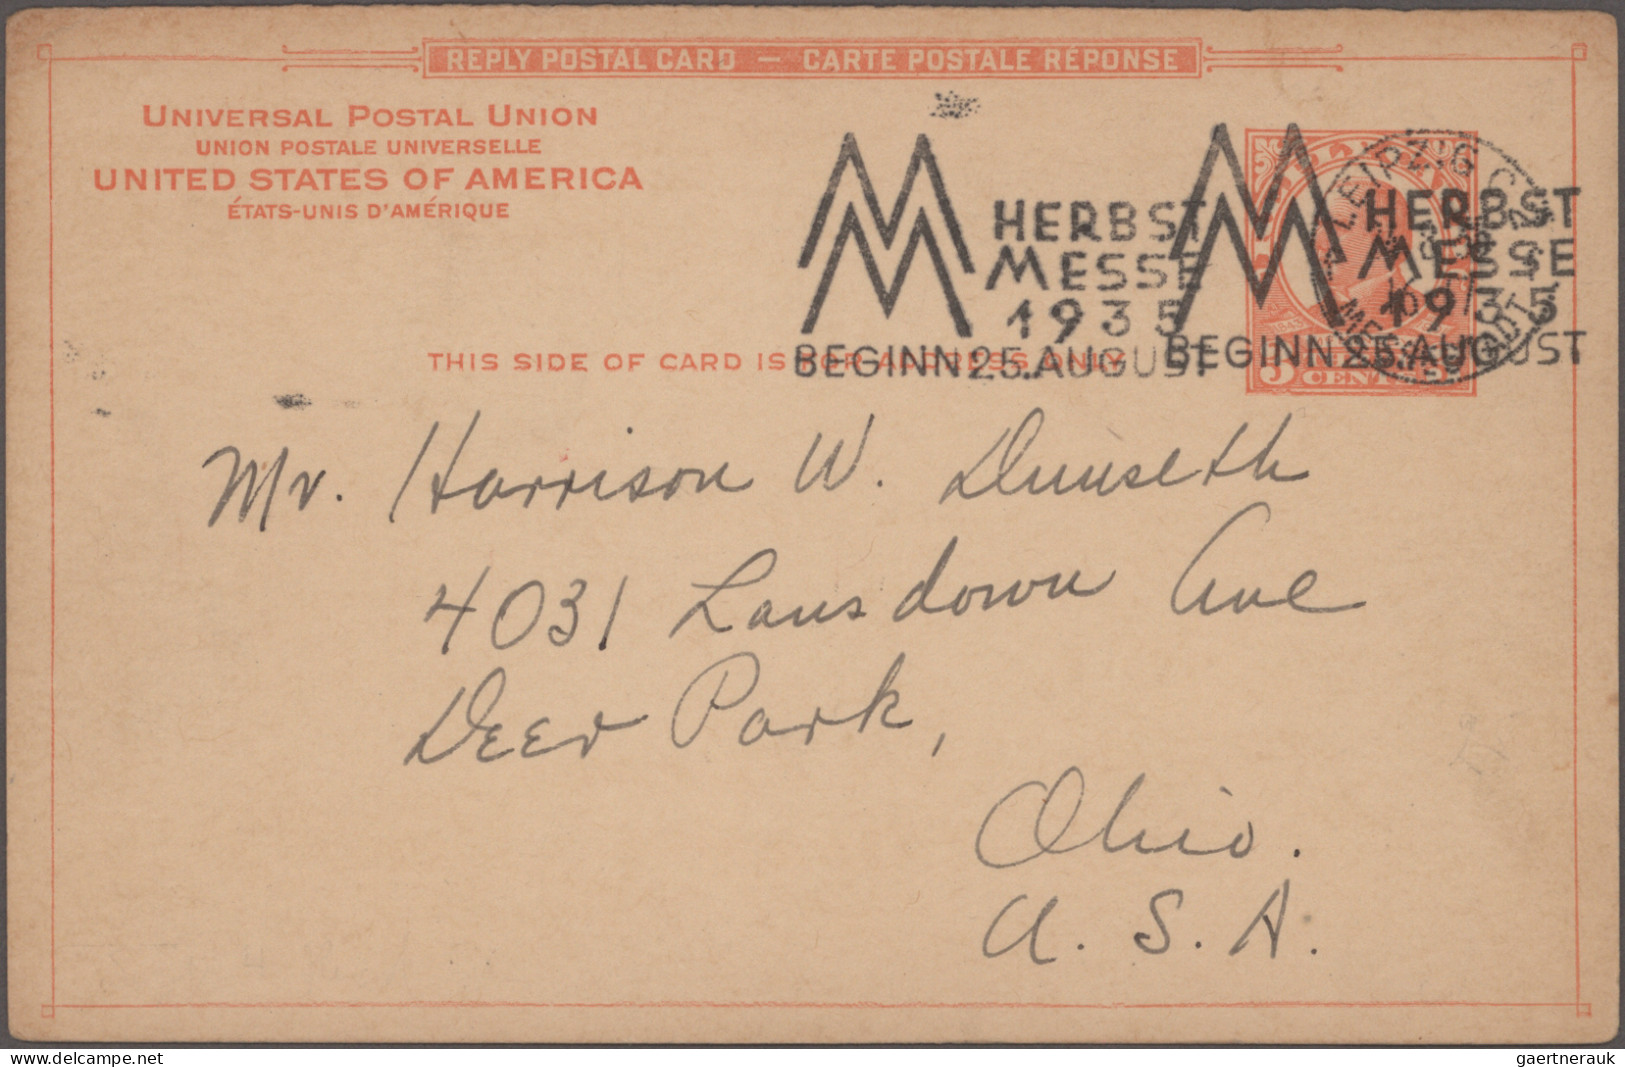 REPLY POSTAL CARD — CARTE POSTALE RÉPONSE
UNIVERSAL POSTAL UNION
UNION POSTALE UNIVERSELLE
UNITED STATES OF AMERICA
ÉTATS-UNIS D'AMÉRIQUE
HERBST
MESSE
1935
BEGINN 25. AUGUST
HERBST
MESSE
1935
BEGINN 25. AUGUST
LEIPZIG
THIS SIDE OF CARD IS FOR ADDRESS ONLY
3 CENTS
Mr. Harrison W. Dunseth
4031 Lansdown Ave
Deer Park,
Ohio.
U. S. A.
www.delcampe.net
gaertnerauk